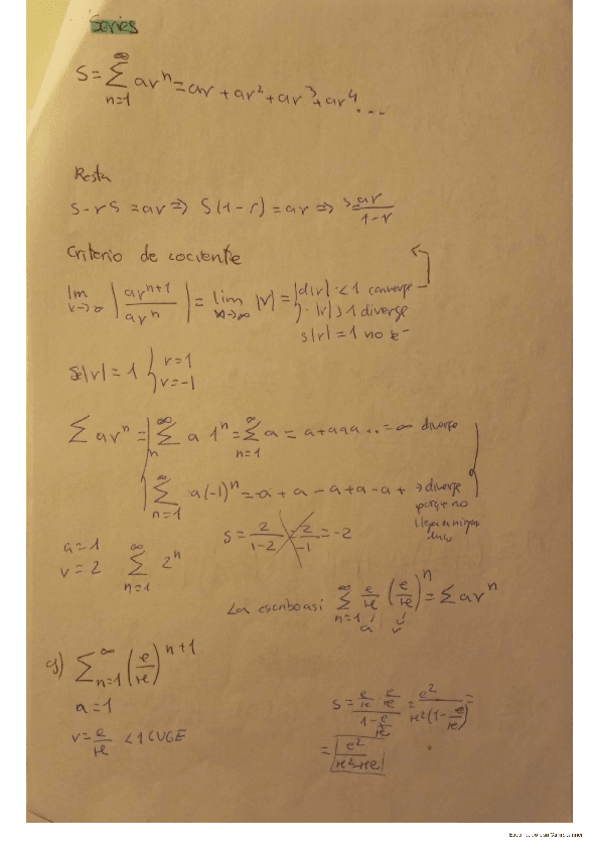 Series
S = ∑_{n=1}^{∞} ar^n = ar + ar^2 + ar^3 + ar^4 ...
Resta
S - rS = ar ⇒ S(1-r) = ar ⇒ S = ar/(1-r)
Criterio de cociente
lim |ar^{n+1}/ar^n| = lim |r| = |r| < 1 converge
|r| > 1 diverge
|r| = 1 no se
Se |r| = 1 { r = 1
r = -1
∑ ar^n = ∑_{n}^{∞} a 1^n = ∑_{n=1}^{∞} a = a + a a a .. = ∞ diverge
∑_{n=1}^{∞} a(-1)^n = -a + a - a + a - a + → diverge
porq no
S = 2/(1-2) = 2/-1 = -2
a = 1
r = 2 ∑_{n=1}^{∞} 2^n
La escribo asi ∑_{n=1}^{∞} e/π (e/π)^n = ∑ ar^n
a r
∑_{n=1}^{∞} (e/π)^{n+1}
a = 1
r = e/π < 1 CVGE
S = (e/π · e/π)/(1 - e/π) = e^2/(π^2(1 - e/π)) =
= e^2/(π^2 - πe)